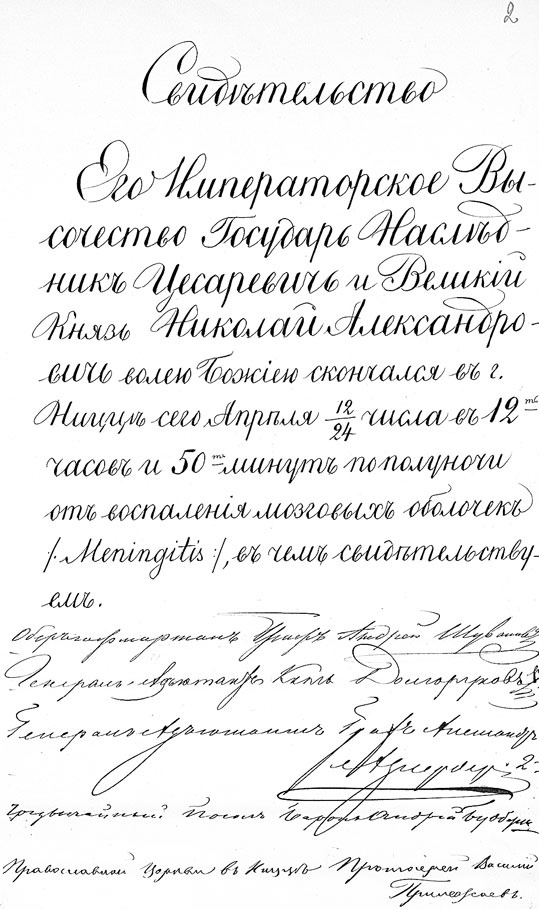 2
Свидѣтельство
Его Императорское Вы-
сочество Государь Наслѣд-
никъ Цесаревичь и Великій
Князь Николай Александро-
вичь волею Божіею скончался въ г.
Ниццѣ сего Апрѣля 12/24 числа въ 12ть
часовъ и 50тъ минутъ пополуночи
отъ воспаленія мозговыхъ оболочекъ
/: Meningitis :/, въ чемъ свидѣтельству-
емъ.
Оберъ-гофмаршалъ Графъ Андрей Шуваловъ
Генералъ-Адъютантъ Князь Долгоруковъ
Генералъ-Адъютантъ Графъ Александръ
Адлербергъ 2-
Чрезвычайный Посолъ Баронъ Андрей Будбергъ
Православной Церкви въ Ниццѣ Протоіерей Василій
Прилежаевъ.